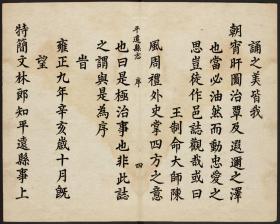 誦之美皆我
朝宵旰圖治覃及遐邇之澤
也當必油然而動忠愛之
思豈徒作邑誌觀哉或曰
王制命大師陳
風周禮外史掌四方之意
也曰是極治事也非此誌
之謂與是為序
平遠縣志 序 四
旹
雍正九年辛亥歲十月既
望
特簡文林郎知平遠縣事上